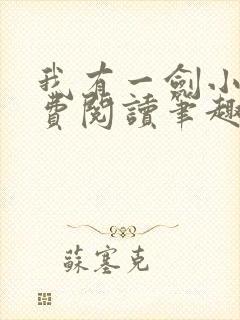 我有一劍小
費閱讀筆趣
蘇塞克